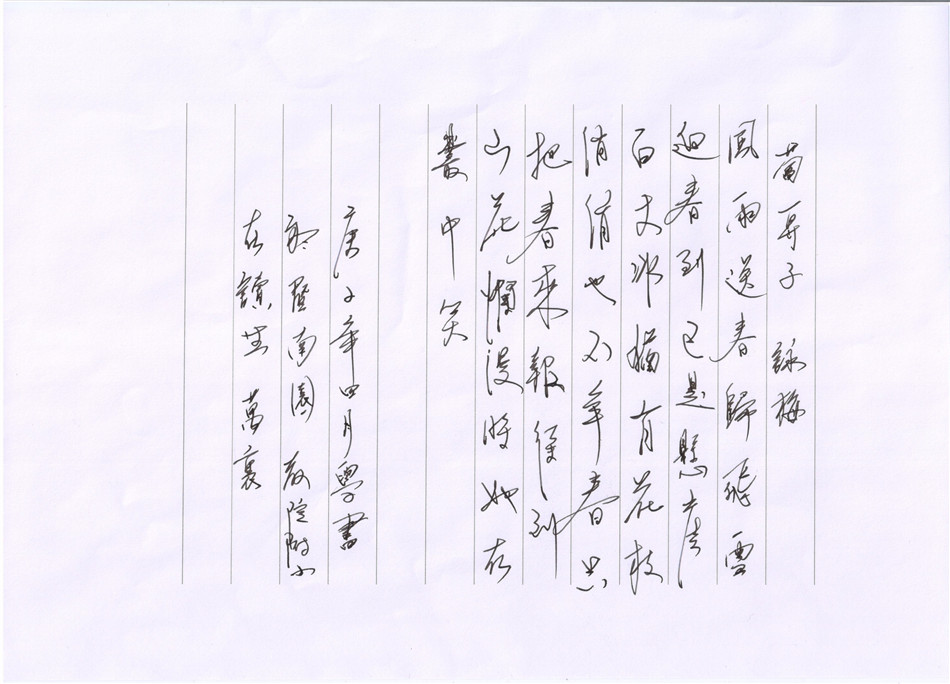 蔔算子 詠梅
風雨送春歸飛雪
迎春到已是懸崖
百丈冰猶有花枝
俏俏也不爭春只
把春來報待到
山花爛漫時她在
叢中笑
庚子年四月學書
南園 院附小
在讀生 萬